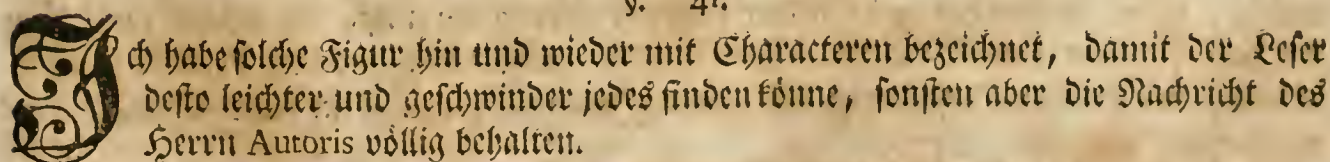 §. 41.
Ich habe solche Figur hin und wieder mit Characteren bezeichnet, damit der Leser
desto leichter und geschwinder jedes finden könne, sonsten aber die Nachricht des
Herrn Autoris völlig behalten.